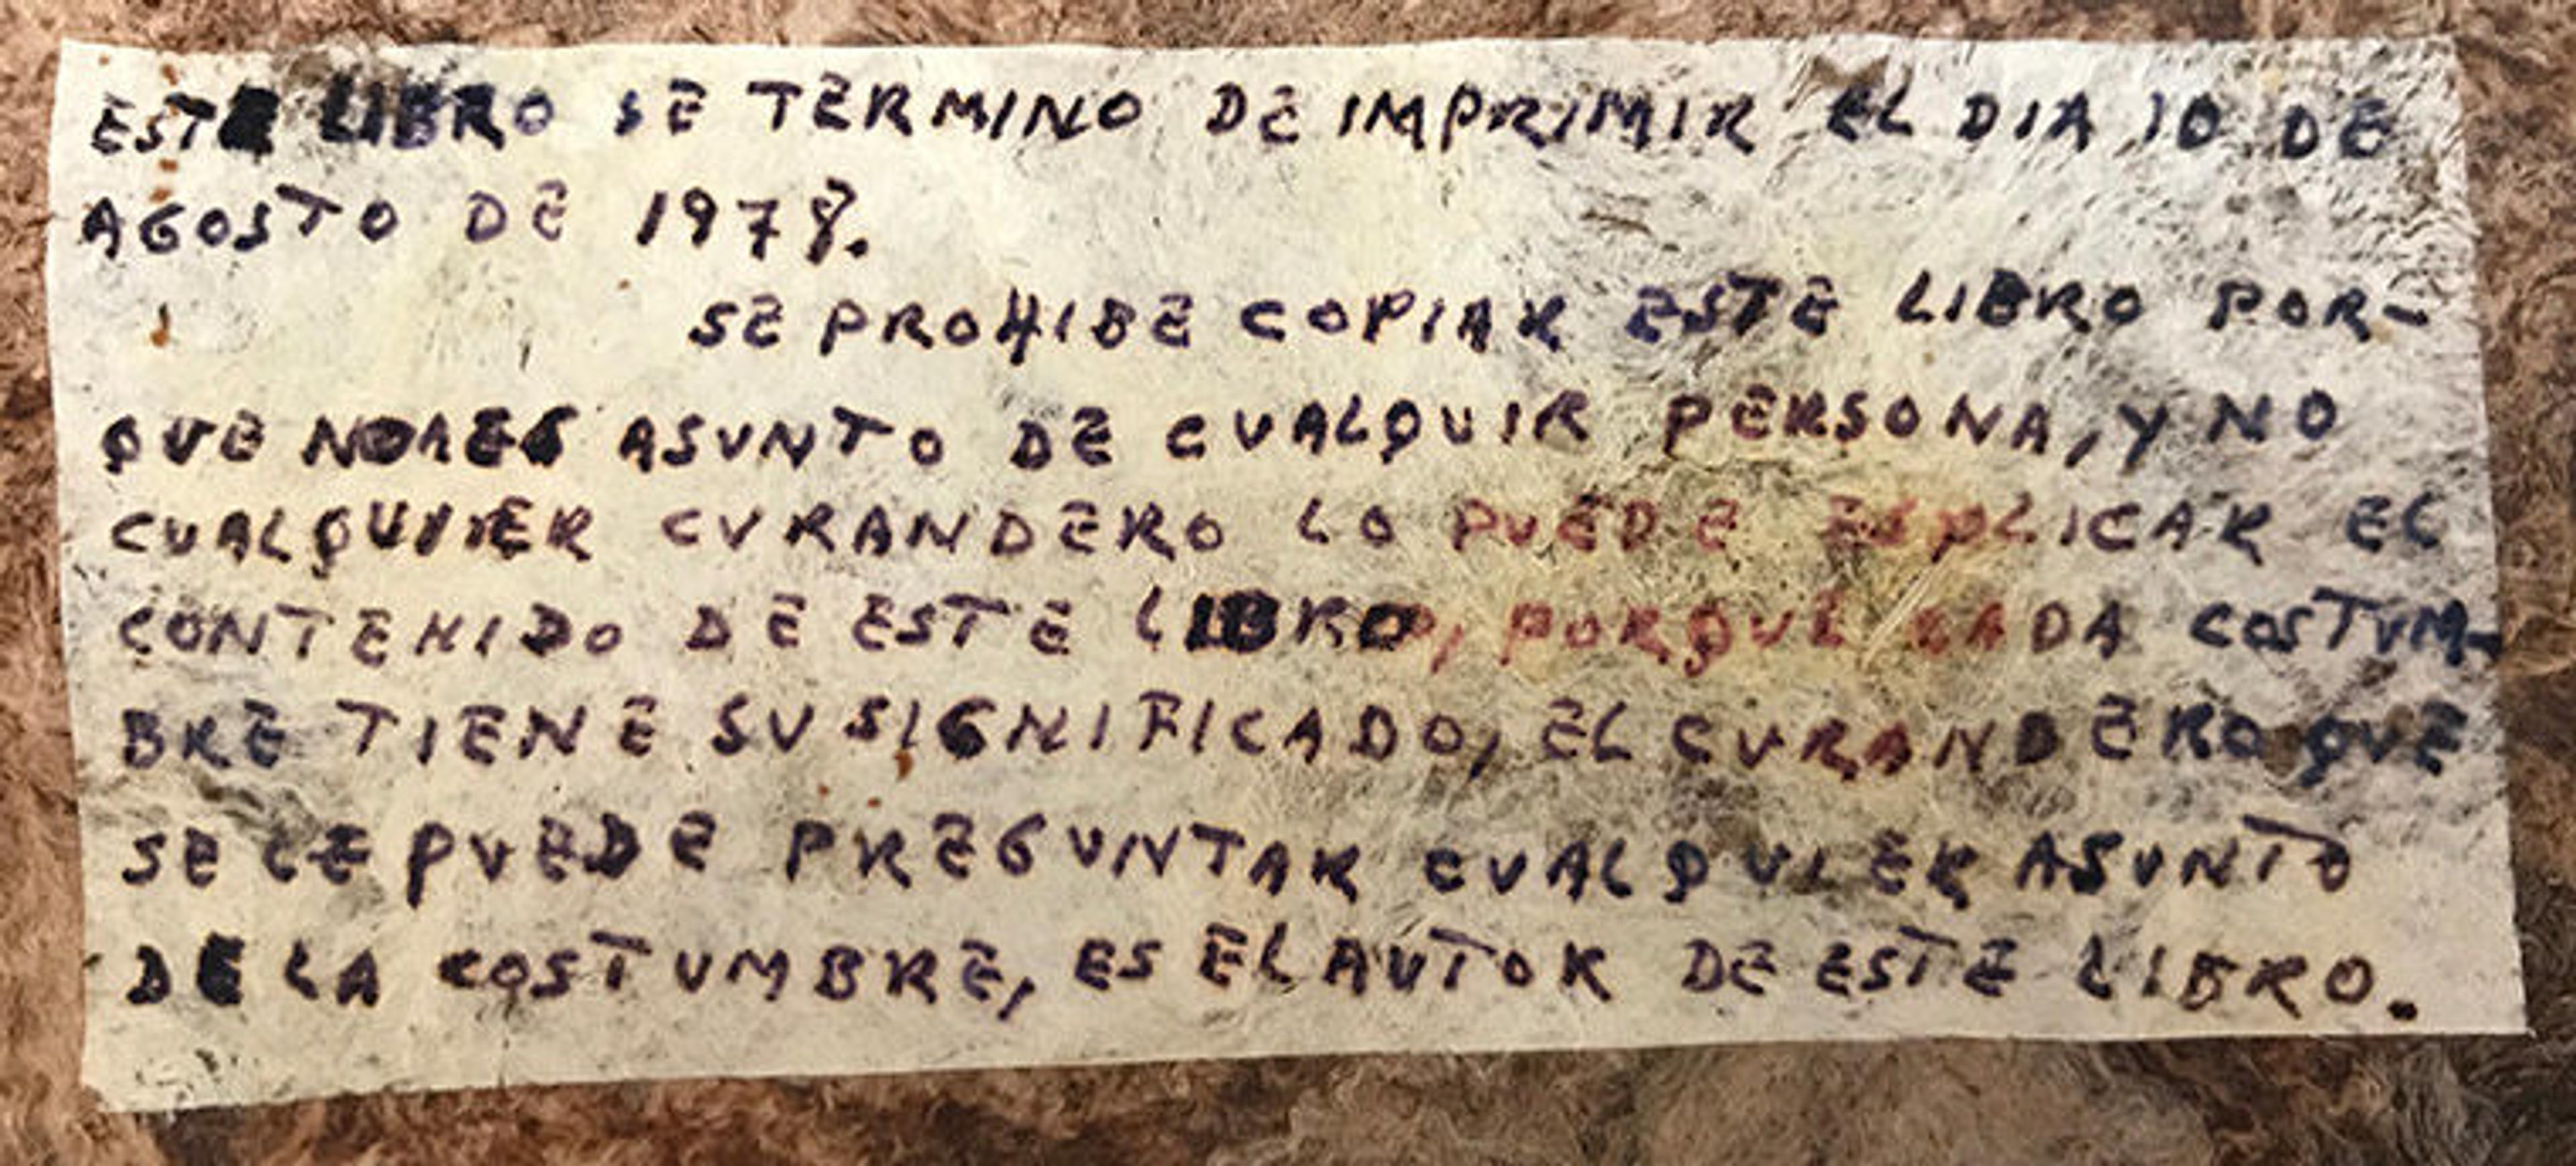 ESTE LIBRO SE TERMINO DE IMPRIMIR EL DIA 10 DE
AGOSTO DE 1978.
SE PROHIBE COPIAR ESTE LIBRO POR-
QUE NO ES ASUNTO DE CUALQUIR PERSONA, Y NO
CUALQUIER CURANDERO LO PUEDE ESPLICAR EL
CONTENIDO DE ESTE LIBRO, PORQUE CADA COSTUM-
BRE TIENE SU SIGNIFICADO, EL CURANDERO QUE
SE LE PUEDE PREGUNTAR CUALQUIER ASUNTO
DE LA COSTUMBRE, ES EL AUTOR DE ESTE LIBRO.